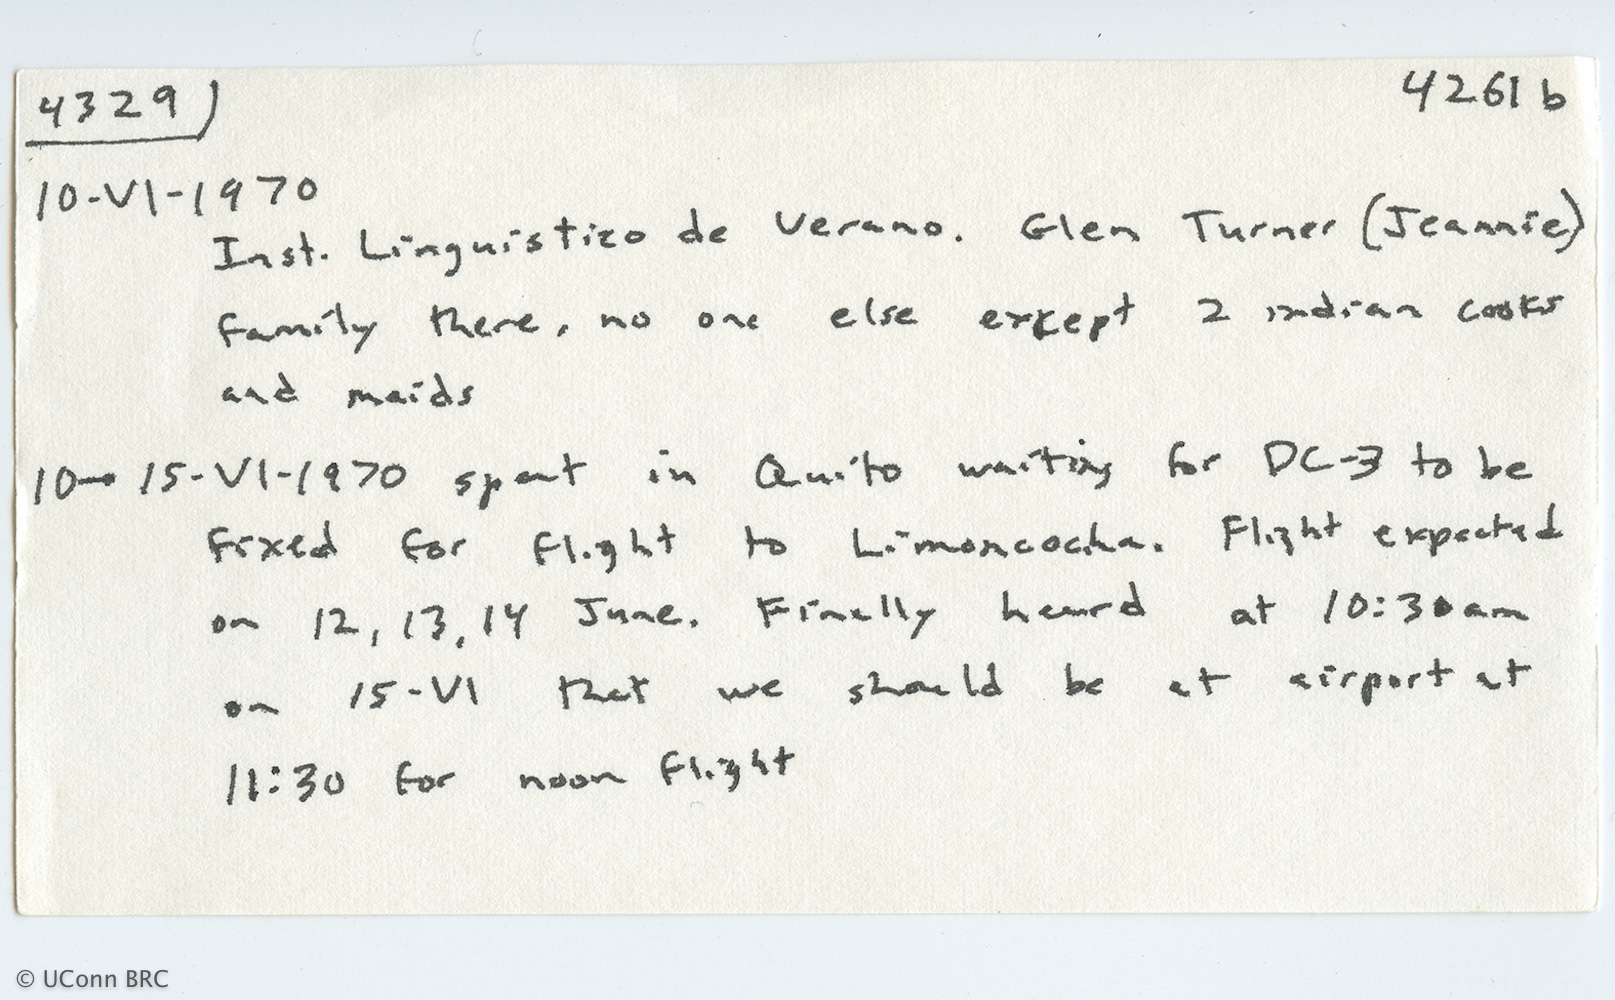 4329) 4261 b
10-VI-1970
Inst. Linguistico de Verano. Glen Turner (Jeannie)
family there, no one else except 2 indian cooks
and maids
10→15-VI-1970 spent in Quito waiting for DC-3 to be
fixed for flight to Limoncocha. Flight expected
on 12, 13, 14 June. Finally heard at 10:30am
on 15-VI that we should be at airport at
11:30 for noon flight
© UConn BRC